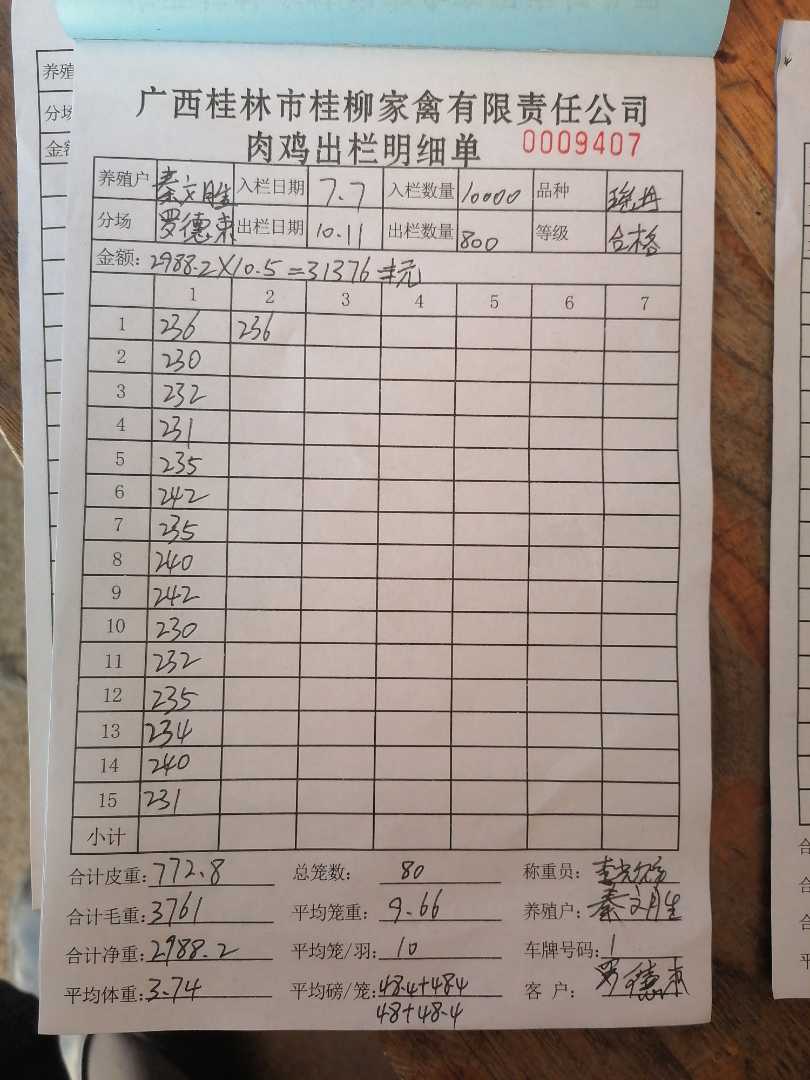 广西桂林市桂柳家禽有限责任公司
肉鸡出栏明细单 0009407
养殖户 秦文胜 入栏日期 7.7 入栏数量 10000 品种 瑶丹
分场 罗德束 出栏日期 10.11 出栏数量 800 等级 合格
金额：2988.2×10.5=31376元
1 2 3 4 5 6 7
1 236 236
2 230
3 232
4 231
5 235
6 242
7 235
8 240
9 242
10 230
11 232
12 235
13 234
14 240
15 231
小计
合计皮重：772.8 总笼数：80 称重员：
合计毛重：3761 平均笼重：9.66 养殖户：秦文胜
合计净重：2988.2 平均笼/羽：10 车牌号码：1
平均体重：3.74 平均磅/笼：48.4+48.4 客户：罗德束
48+48.4
养殖
分场
金额